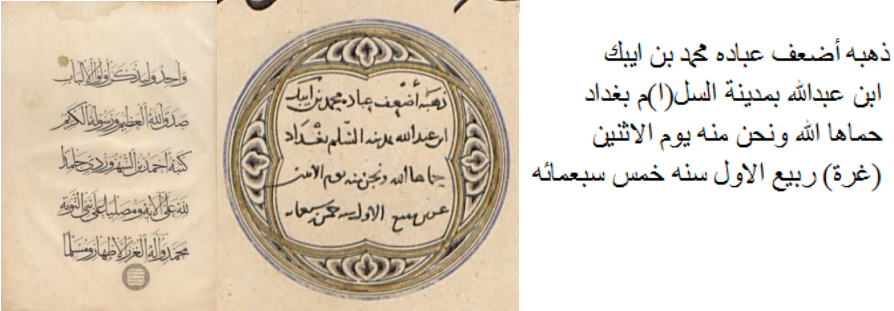 واحد وليذكر اولوا الالباب
صدق الله العظيم ورسوله الكريم
كتبه احمد بن السهروردي حامدا
لله على آلائه ومصليا على نبيه
محمد وآله الغر الاطهار ومسلما
ذهبه أضعف عباده محمد بن ايبك
ابن عبدالله بمدينة السلم بغداد
حماها الله ونحن منه يوم الاثنين
ربيع الاول سنه خمس سبعمائه
ذهبه أضعف عباده محمد بن ايبك
ابن عبدالله بمدينة السل(ا)م بغداد
حماها الله ونحن منه يوم الاثنين
(غرة) ربيع الاول سنه خمس سبعمائه